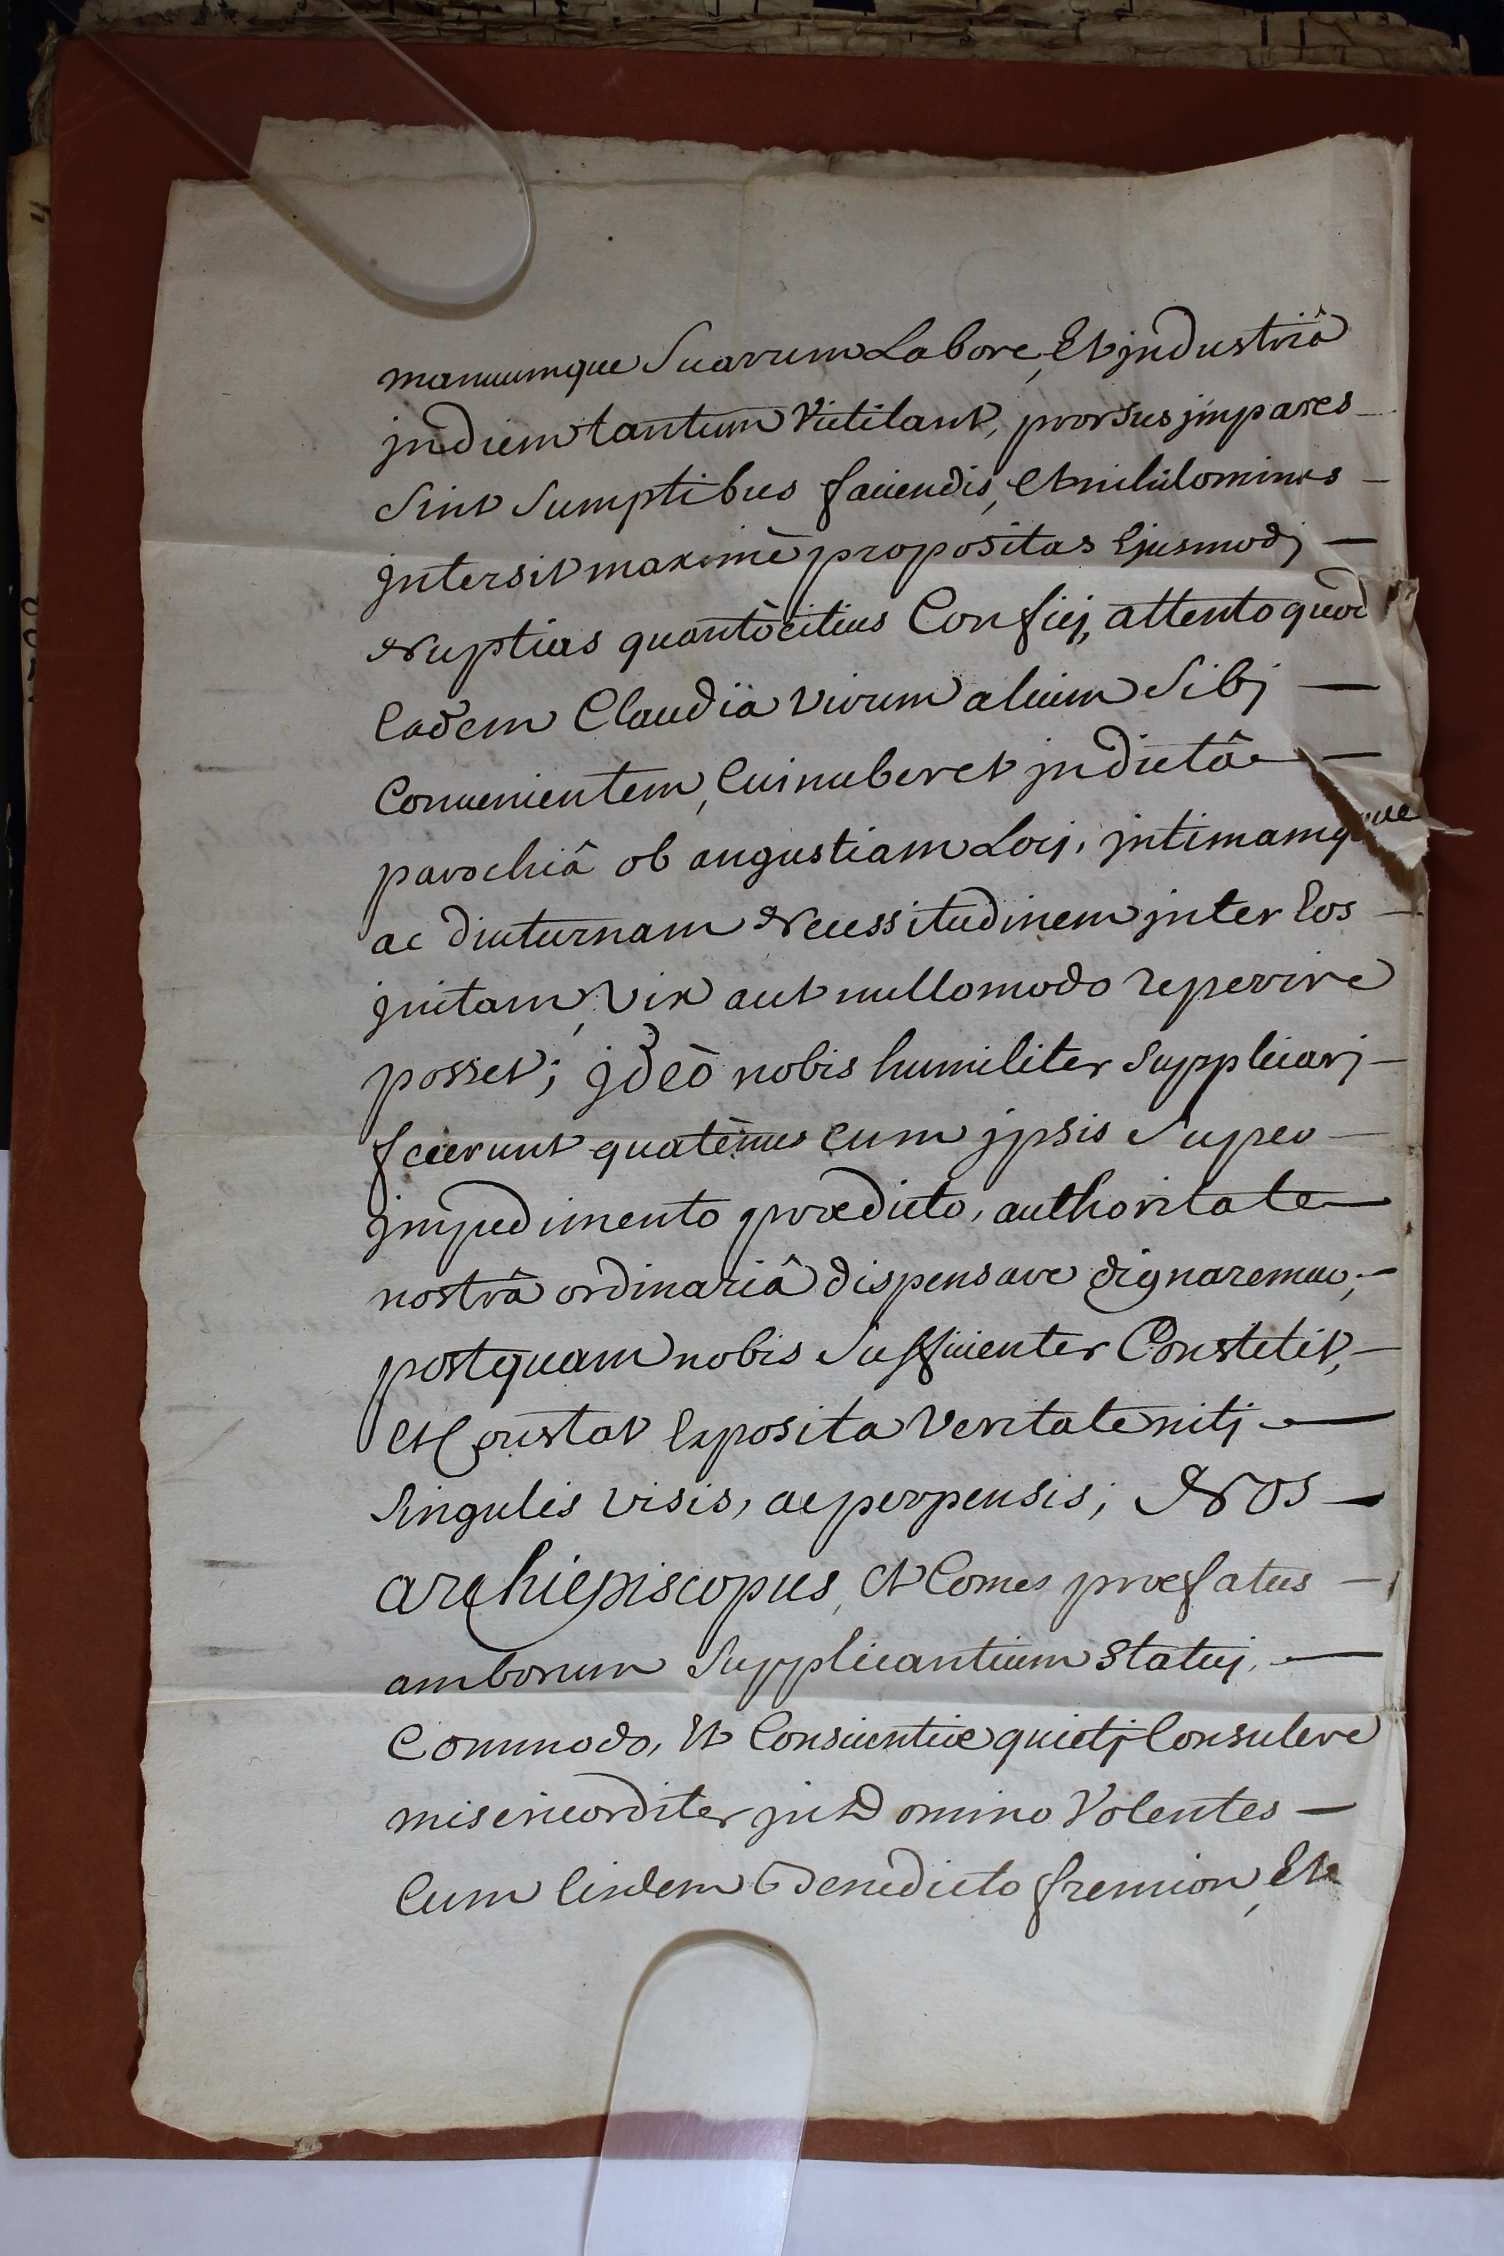 manuumque Suarum Labore, Et jndustriâ
jndiem tantum Victitant, prorsus jmpares
Sint Sumptibus faciendis, et nihilominus
jntersit maximè propositas Ejusmodj
Nuptias quantòcitius Conficj, attento quod
Eadem Claudia Virum alium Sibj
Convenientem, Cui nuberet jn dictâ
parochiâ ob angustiam Locj, jntimamque
ac diuturnam Necessitudinem jnter Eos
jnitam, Vix aut nullomodo reperire
posset; jdeò nobis humiliter Supplicarj
fecerunt quatènus cum jpsis Super
jmpedimento prædicto, authoritate
nostrâ ordinariâ dispensare dignaremur;
postquam nobis Sufficienter Constitit,
et Constat Exposita Veritate nitj
Singulis visis, ac perpensis; Nos
archiepiscopus, et Comes præfatus
amborum Supplicantium Statuj,
Commodo, Et Conscientiæ quietj Consulere
misericorditer jn Domino Volentes
Cum Eisdem Benedicto fremion, Et